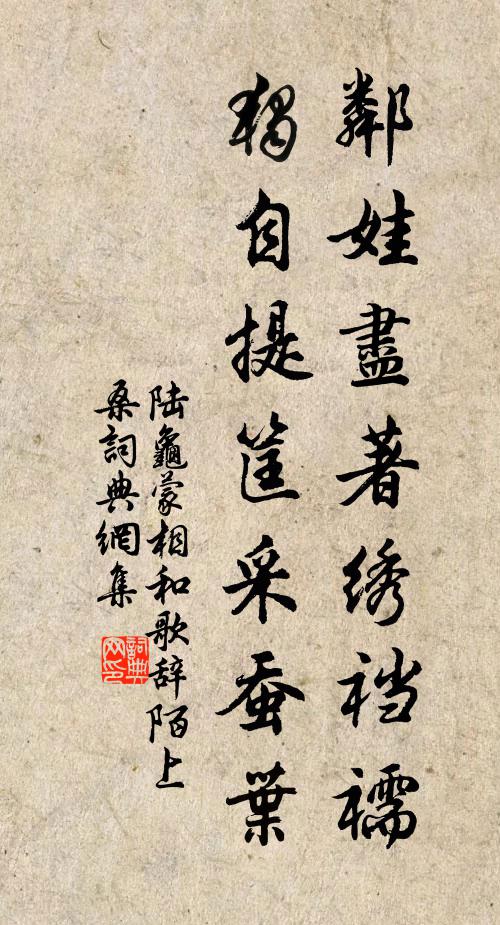 鄰娃盡著绣襠襦
獨自提筐采蚕葉
陸龜蒙相和歌辞陌上
桑詞典網集
詞典网印